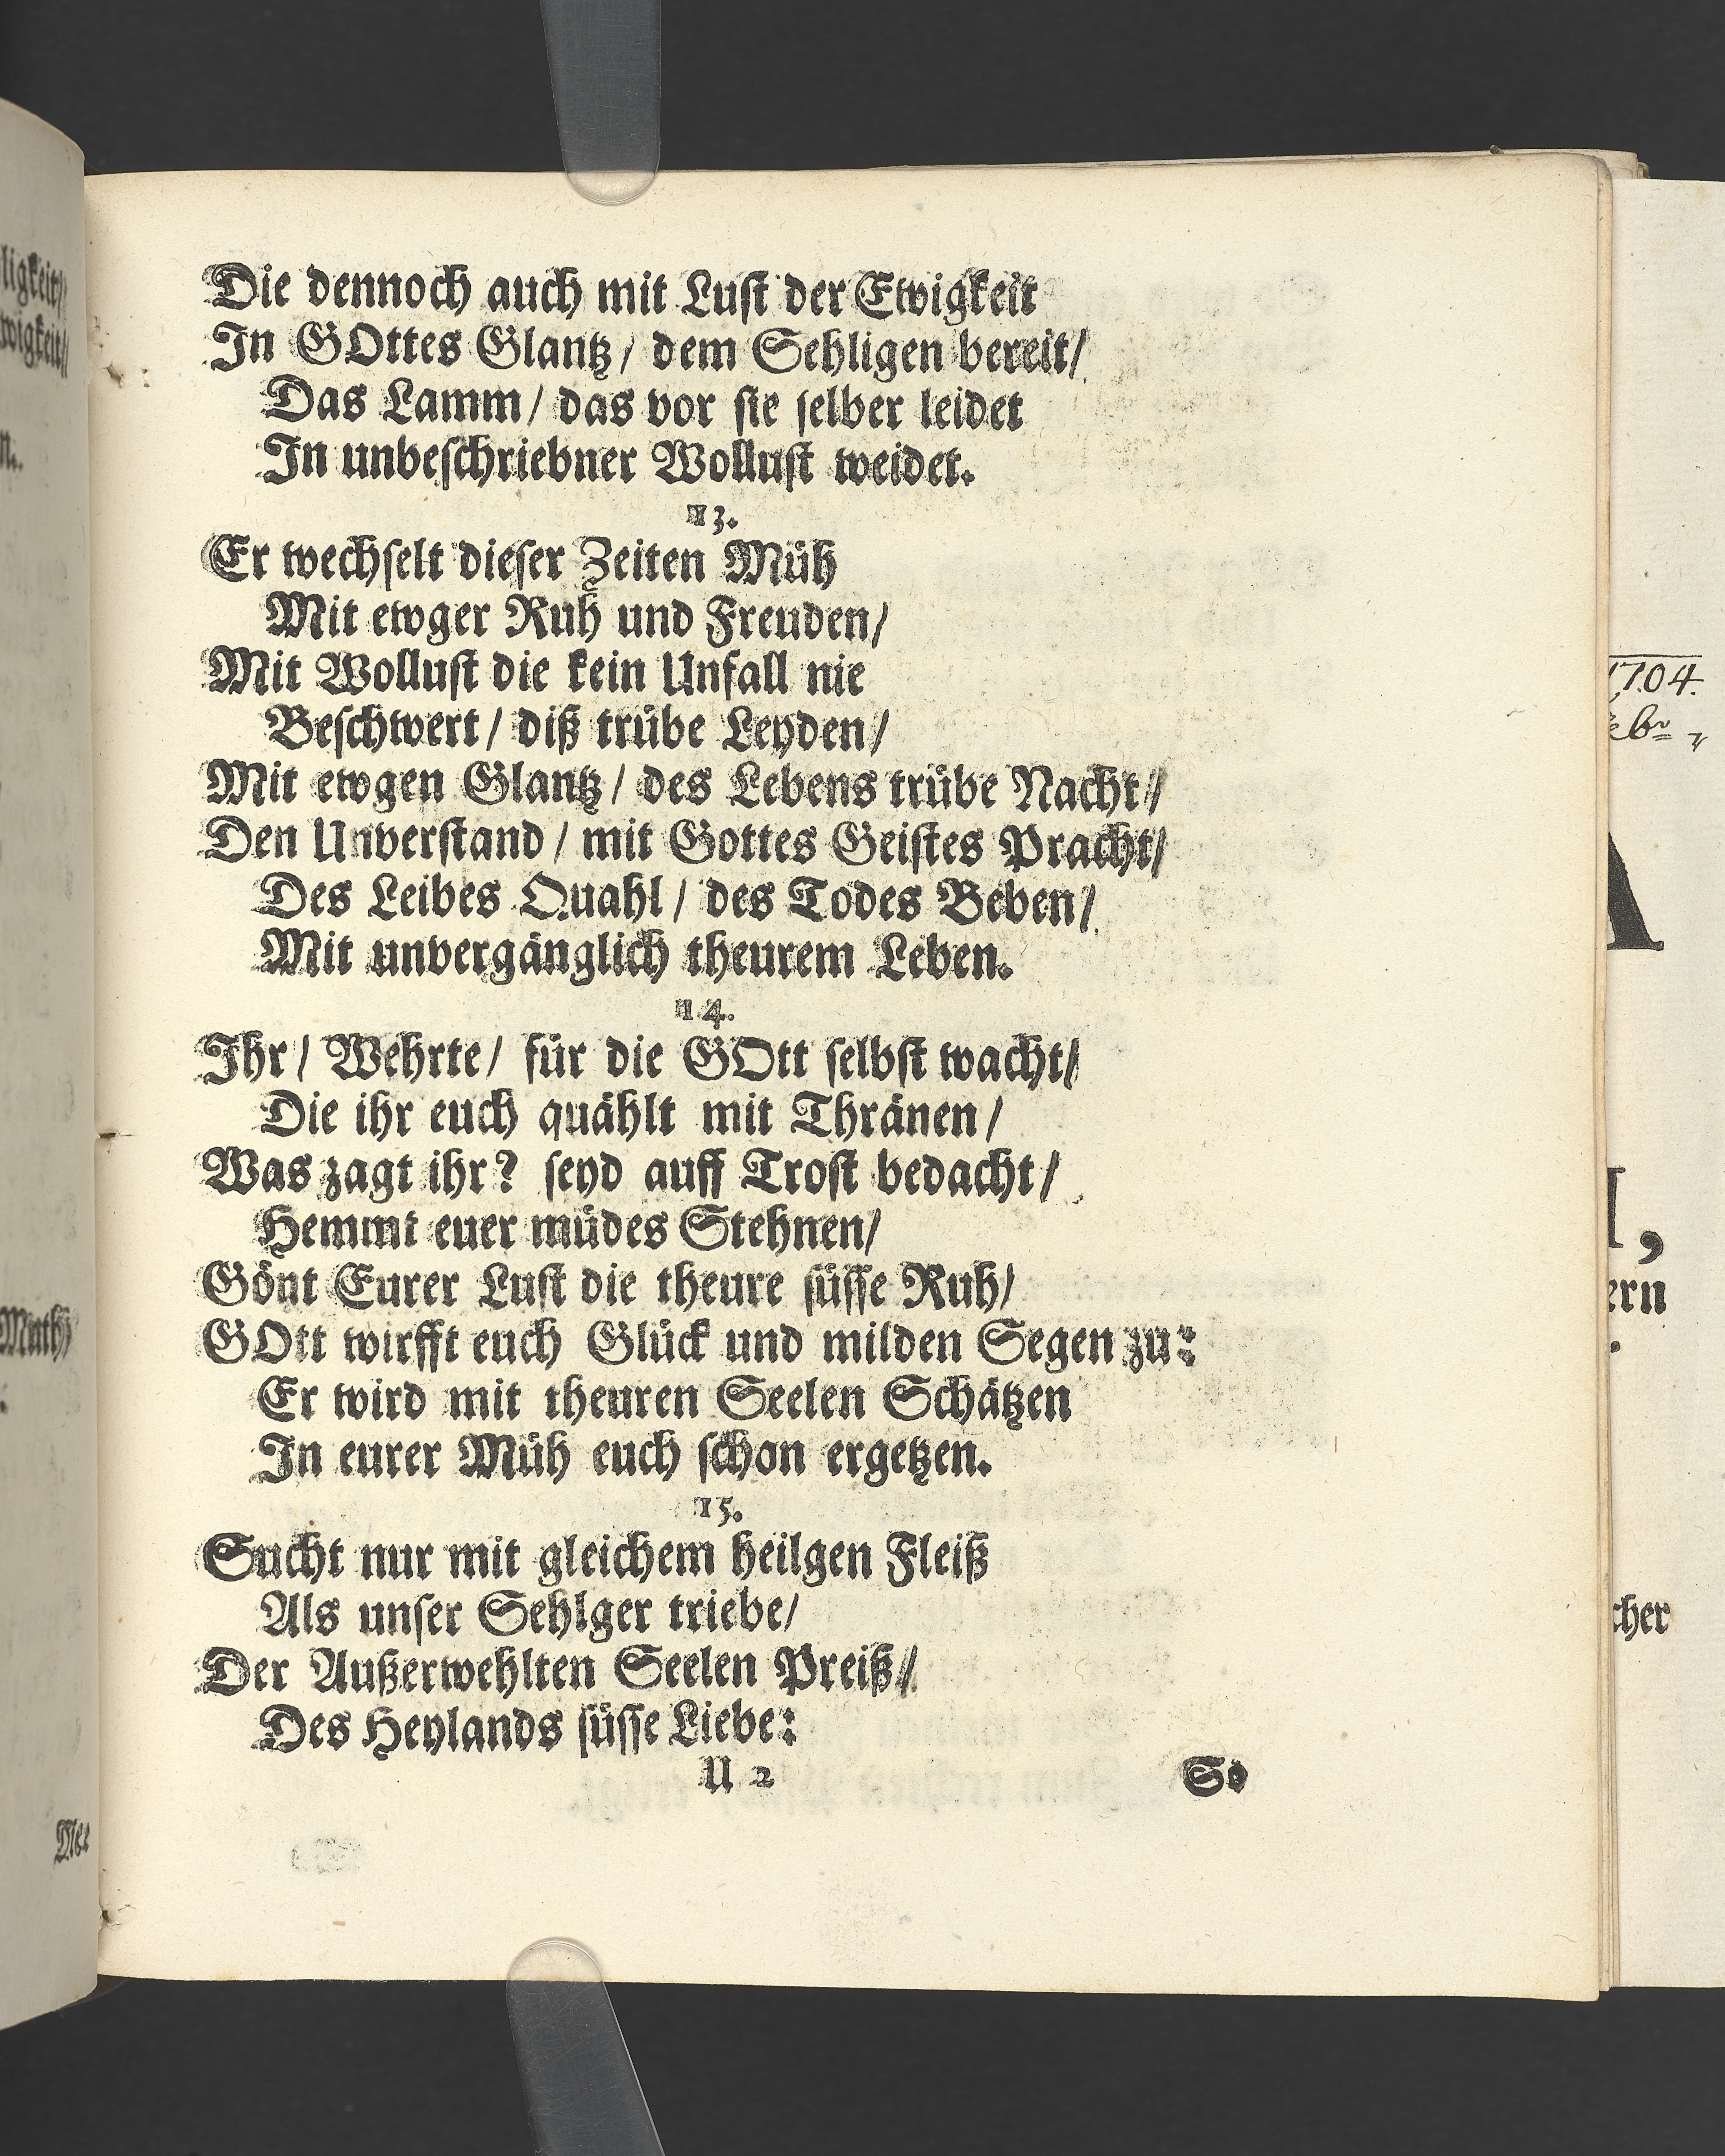 Die dennoch auch mit Lust der Ewigkeit
In GOttes Glantz / dem Sehligen bereit /
Das Lamm / das vor sie selber leidet
In unbeschriebner Wollust weidet.
13.
Er wechselt dieser Zeiten Müh
Mit ewger Ruh und Freuden /
Mit Wollust die kein Unfall nie
Beschwert / diß trübe Leyden /
Mit ewgen Glantz / des Lebens trübe Nacht /
Den Unverstand / mit Gottes Geistes Pracht /
Des Leibes Quahl / des Todes Beben /
Mit unvergänglich theurem Leben.
14.
Ihr / Wehrte / für die GOtt selbst wacht /
Die ihr euch quählt mit Thränen /
Was zagt ihr? seyd auff Trost bedacht /
Hemmt euer müdes Stehnen /
Gönt Eurer Lust die theure süsse Ruh /
GOtt wirfft euch Glück und milden Segen zu:
Er wird mit theuren Seelen Schätzen
In eurer Müh euch schon ergetzen.
15.
Sucht nur mit gleichem heilgen Fleiß
Als unser Sehlger triebe /
Der Außerwehlten Seelen Preiß /
Des Heylands süsse Liebe:
U 2 So
ligkeit /
wigkeit /
n.
Muth
1704.
A
,
ern
cher